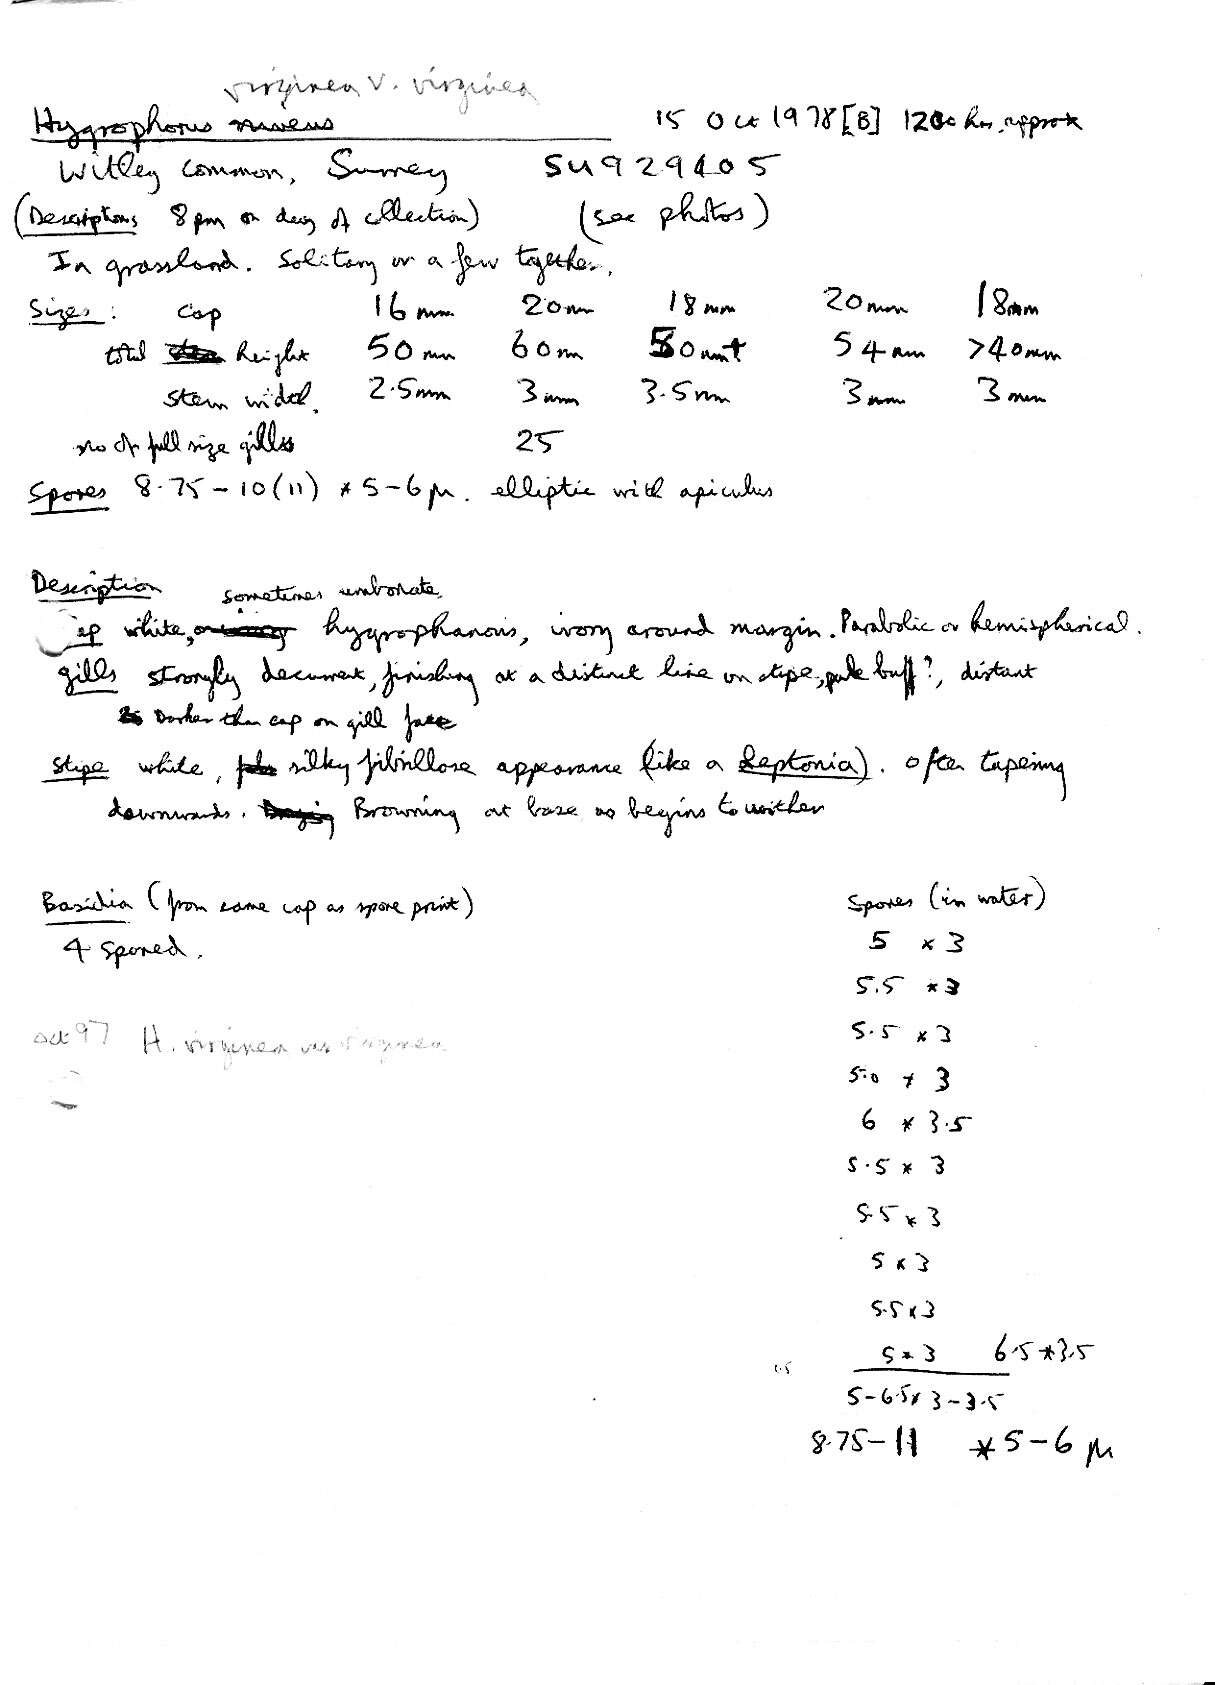 virginea v. virginea
Hygrophorus niveus 15 Oct 1978 [B] 1200 hrs. approx
Witley Common, Surrey SU929405
(Descriptions 8pm on day of collection) (see photos)
In grassland. Solitary or a few together.
Sizes: cap 16mm 20mm 18mm 20mm 18mm
total height 50mm 60mm 50mm+ 54mm >40mm
stem width 2.5mm 3mm 3.5mm 3mm 3mm
no of full size gills 25
Spores 8.75-10(11) * 5-6µ. elliptic with apiculus
Description sometimes umbonate
cap white, hygrophanous, ivory around margin. Parabolic or hemispherical.
gills strongly decurrent, finishing at a distinct line on stipe, pale buff?, distant
Darker than cap on gill face
Stipe white, silky fibrillose appearance (like a Leptonia). often tapering
downwards. Browning at base as begins to wither
Basidia (from same cap as spore print) Spores (in water)
4 spored. 5 * 3
5.5 * 3
Oct 97 H. virginea var virginea 5.5 * 3
5.0 * 3
6 * 3.5
5.5 * 3
5.5 * 3
5 * 3
5.5 * 3
5 * 3 6.5 * 3.5
5-6.5 * 3-3.5
8.75-11 * 5-6 µ